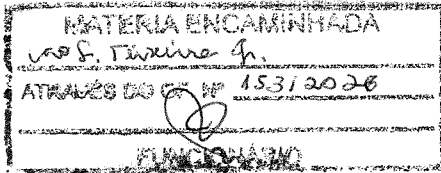 MATERIA ENCAMINHADA
S. Teixeira Jr.
ATRAVÉS DO OF Nº 153/2026
FUNCIONÁRIO